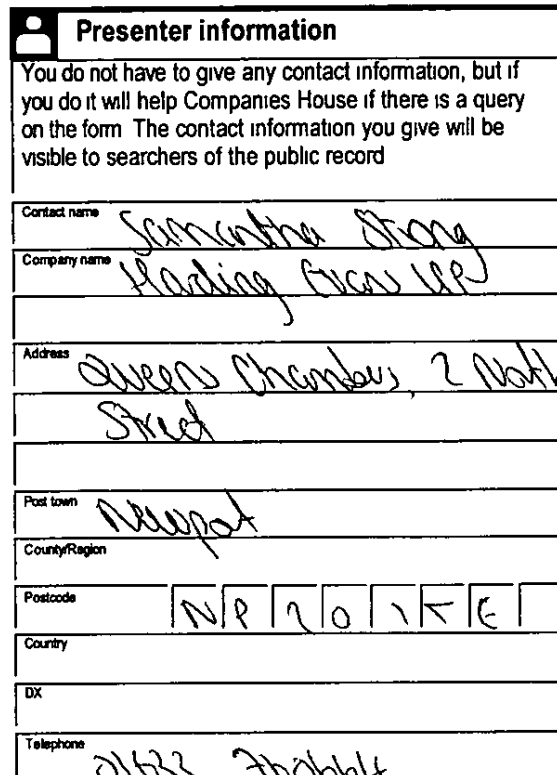 Presenter information
You do not have to give any contact information, but if
you do it will help Companies House if there is a query
on the form The contact information you give will be
visible to searchers of the public record
Contact name Samantha Strong
Company name Harding Evans LLP
Address Queens Chambers, 2 North
Street
Post town Newport
County/Region
Postcode NP20 1
Country
DX
Telephone 01633